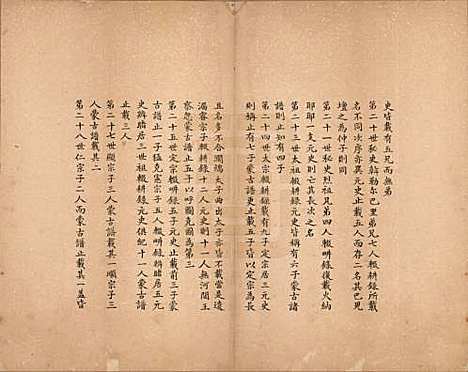 史皆載有五兄而無弟
第二十世秘史孛勒巴里弟兄七人輟耕錄所載
名不同次序亦異元史止載五人而存二名其巴兒
壇之為仲子則同
第二十一世秘史烈祖兄弟四人輟畊錄復載火納
耶耶一支元史則亡其長次之名
第二十三世太祖輟畊錄元史皆稱有六子蒙古諸
譜則止知有四子
第二十四世太宗輟畊錄載有九子定宗居三元史
則稱止有七子蒙古譜更止載五子皆以定宗為長
且名多不合濶端太子曲出太子亦皆不載當是遺
漏睿宗子輟耕錄十二人元史則十一人無河間王
察忽蒙古譜止五子以呼圖克圖為第三
第二十五世定宗輟畊錄五子元史止載前三子蒙
古譜止一子猛克憲宗子五人輟畊錄臨居五元
史辨臨居三世祖輟耕錄元史俱紀十一人蒙古譜
止載三人
第二十七世顯宗子三人蒙古譜載其一順宗子三
人蒙古譜載其二
第二十八世仁宗子二人而蒙古譜止載其一蓋皆